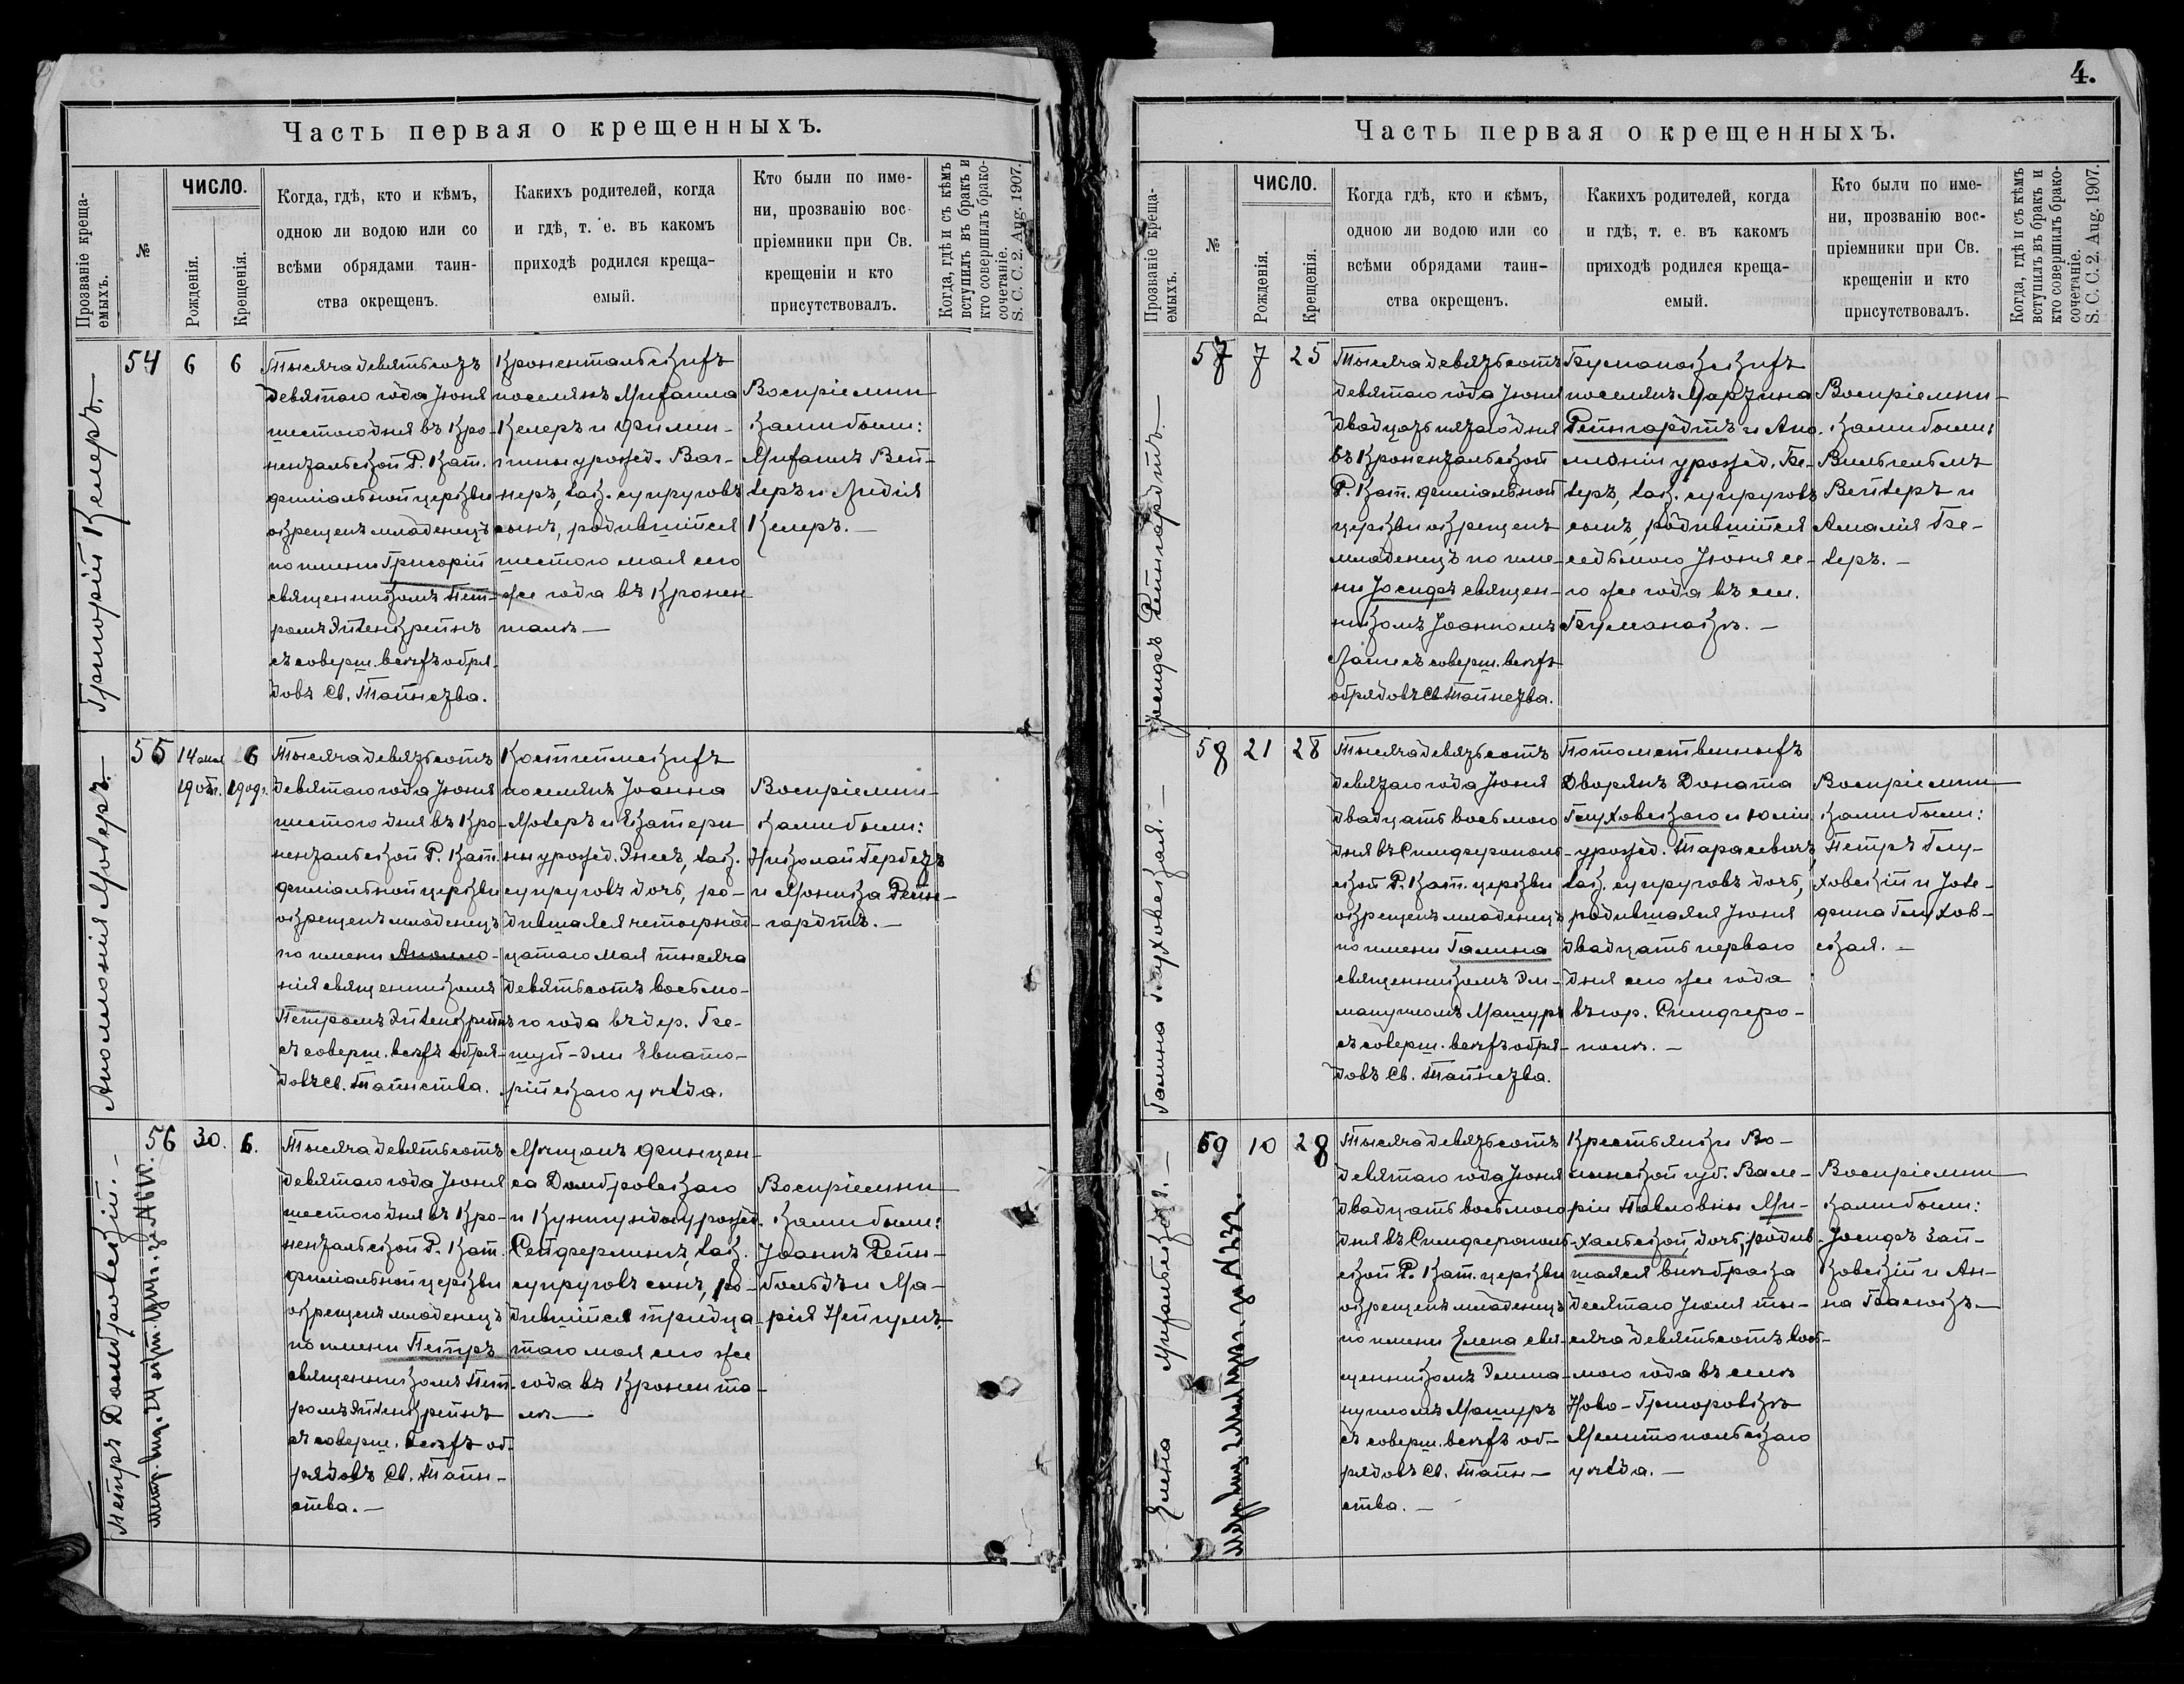 Часть первая о крещенныхъ.
Прозваніе креща-
емыхъ.
№
ЧИСЛО.
Рожденія.
Крещенія.
Когда, гдѣ, кто и кѣмъ,
одною ли водою или со
всѣми обрядами таин-
ства окрещенъ.
Какихъ родителей, когда
и гдѣ, т. е. въ какомъ
приходѣ родился креща-
емый.
Кто были по име-
ни, прозванію вос-
пріемники при Св.
крещеніи и кто
присутствовалъ.
Когда, гдѣ и съ кѣмъ
вступилъ въ бракъ и
кто совершилъ брако-
сочетаніе.
S. C. C. 2. Aug. 1907.
Григорій Келеръ.
54
6
6
Тысяча девятьсотъ
девятаго года Іюня
шестого дня въ Кро-
нентальской Р. Кат.
филіальной церкви
окрещенъ младенецъ
по имени Григорій
священникомъ Пет-
ромъ
съ соверш. всѣхъ обря-
довъ Св. Таинства.
Кронентальскихъ
поселянъ Михаила
Келеръ и Филип-
пины урожд. Ваг-
неръ, зак. супруговъ
сынъ, родившійся
шестого мая сего
же года въ Кронен-
талѣ —
Воспріемни-
ками были:
Михаилъ Вей-
зеръ и Лидія
Келеръ. —
Аполлонія Мозеръ. —
55
14 мая
1908г.
6
1909г.
Тысяча девятьсотъ
девятаго года Іюня
шестого дня въ Кро-
нентальской Р. Кат.
филіальной церкви
окрещенъ младенецъ
по имени Аполло-
нія священникомъ
Петромъ
съ соверш. всѣхъ обря-
довъ Св. Таинства.
поселянъ Іоанна
Мозеръ и Екатери-
ны урожд. зак.
супруговъ дочь, ро-
дившаяся четырнад-
цатаго мая тысяча
девятьсотъ восьмо-
го года въ дер.
Евпато-
рійскаго уѣзда.
Воспріемни-
ками были:
Николай Гербецъ
и Моника Рейн-
гардтъ. —
Петръ Домбровскій. —
метр. выд. 24 за №
56
30.
6.
Тысяча девятьсотъ
девятаго года Іюня
шестого дня въ Кро-
нентальской Р. Кат.
филіальной церкви
окрещенъ младенецъ
по имени Петръ
священникомъ Пет-
ромъ
съ соверш. всѣхъ об-
рядовъ Св. Таин-
ства. —
Мѣщанъ Финцен-
са Домбровскаго
и Кунигунды урожд.
зак.
супруговъ сынъ, ро-
дившійся тридца-
таго мая сего же
года въ Кронента-
лѣ —
Воспріемни-
ками были:
Іоаннъ Рейн-
больдъ и Ма-
рія
4.
Часть первая о крещенныхъ.
Прозваніе креща-
емыхъ.
№
ЧИСЛО.
Рожденія.
Крещенія.
Когда гдѣ, кто и кѣмъ,
одною ли водою или со
всѣми обрядами таин-
ства окрещенъ.
Какихъ родителей, когда
и гдѣ, т. е. въ какомъ
приходѣ родился креща-
емый.
Кто были по име-
ни, прозванію вос-
пріемники при Св.
крещеніи и кто
присутствовалъ.
Когда, гдѣ и съ кѣмъ
вступилъ въ бракъ и
кто совершилъ брако-
сочетаніе.
S. C. C. 2. Aug. 1907.
Іосифъ Рейнгардтъ. —
57
7
25
Тысяча девятьсотъ
девятаго года Іюня
двадцать пятаго дня
въ Кронентальской
Р. Кат. филіальной
церкви окрещенъ
младенецъ по име-
ни Іосифъ священ-
никомъ Іоанномъ
съ соверш. всѣхъ
обрядовъ Св. Таинства.
поселянъ Мартина
Рейнгардтъ и Апо-
лоніи урожд. Ге-
зеръ, зак. супруговъ
сынъ, родившійся
седьмого Іюня се-
го же года въ сел.
Воспріемни-
ками были:
Вильгельмъ
Вейзеръ и
Амалія Ге-
зеръ. —
Галина Глуховская. —
58
21
28
Тысяча девятьсотъ
девятаго года Іюня
двадцать восьмого
дня въ Симферополь-
ской Р. Кат. церкви
окрещенъ младенецъ
по имени Галина
священникомъ Эм-
мануиломъ Мацуръ
съ соверш. всѣхъ обря-
довъ Св. Таинства.
Потомственныхъ
Дворянъ Доната
Глуховскаго и Юліи
урожд. Тарасевичъ,
зак. супруговъ дочь,
родившаяся Іюня
двадцать перваго
дня сего же года
въ гор. Симферо-
полѣ. —
Воспріемни-
ками были:
Петръ Глу-
ховскій и Іозе-
фина Глухов-
ская. —
Елена Михальская. —
за № 232.
59
10
28
Тысяча девятьсотъ
девятаго года Іюня
двадцать восьмого
дня въ Симферополь-
ской Р. Кат. церкви
окрещенъ младенецъ
по имени Елена свя-
щенникомъ Эмма-
нуиломъ Мацуръ
съ соверш. всѣхъ об-
рядовъ Св. Таин-
ства. —
Крестьянки Во-
лынской губ. Вале-
ріи Павловны Ми-
хальской, дочь, родив-
шаяся внѣ брака
десятаго Іюля ты-
сяча девятьсотъ вось-
мого года въ селѣ
Ново-Григоровкѣ
Мелитопольскаго
уѣзда. —
Воспріемни-
ками были:
Іосифъ Зай-
ковскій и Ан-
на